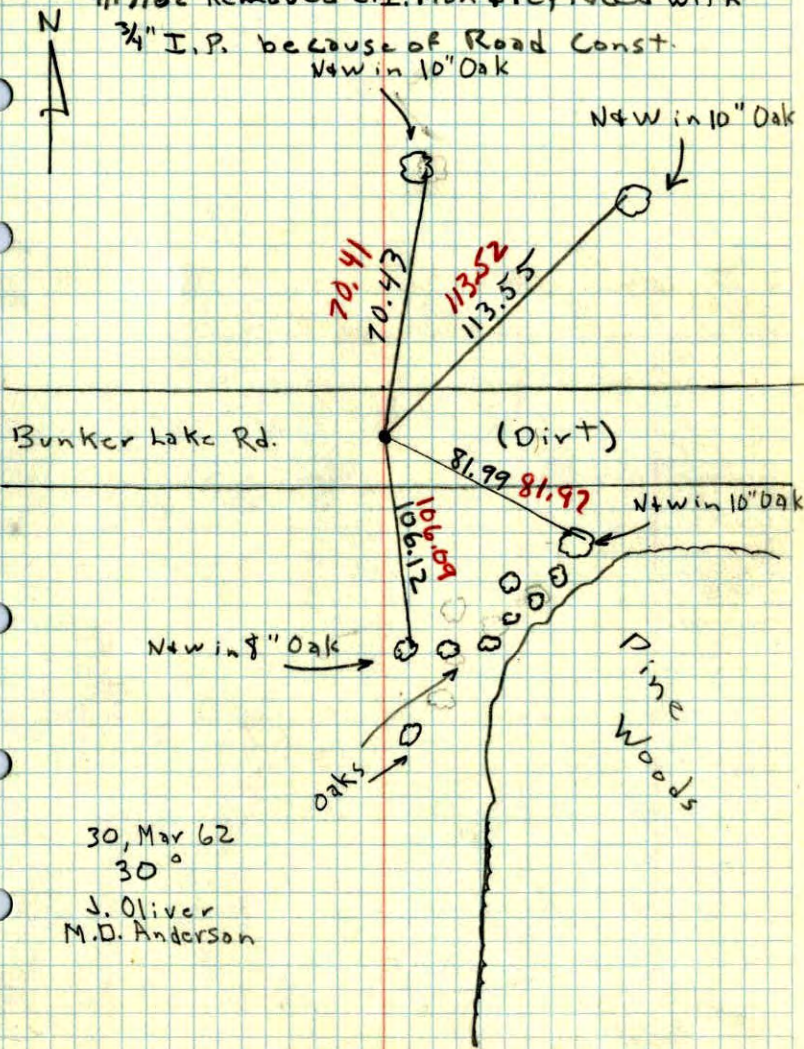 Removed C.I. Mon & replaced with
3/4" I.P. because of Road Const.
N&W in 10" Oak
N
N&W in 10" Oak
70.41
70.43
113.52
113.55
Bunker Lake Rd.
(Dirt)
81.99 81.97
N&W in 10" Oak
106.09
106.12
N&W in 8" Oak
Pine
Woods
Oaks
30, Mar 62
30°
J. Oliver
M.D. Anderson